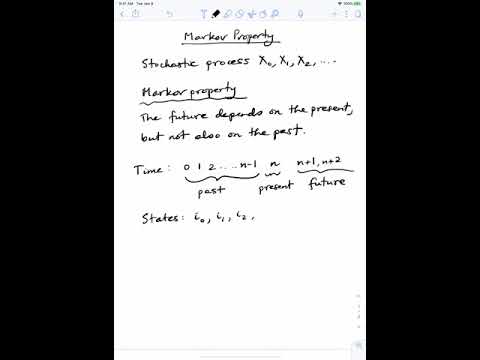 9:41 AM Tue Jan 9
Markov Property
Stochastic process X₀, X₁, X₂, ....
Markov property
The future depends on the present,
but not also on the past.
Time: 0 1 2 .... n-1 n n+1, n+2
past present future
States: i₀, i₁, i₂,